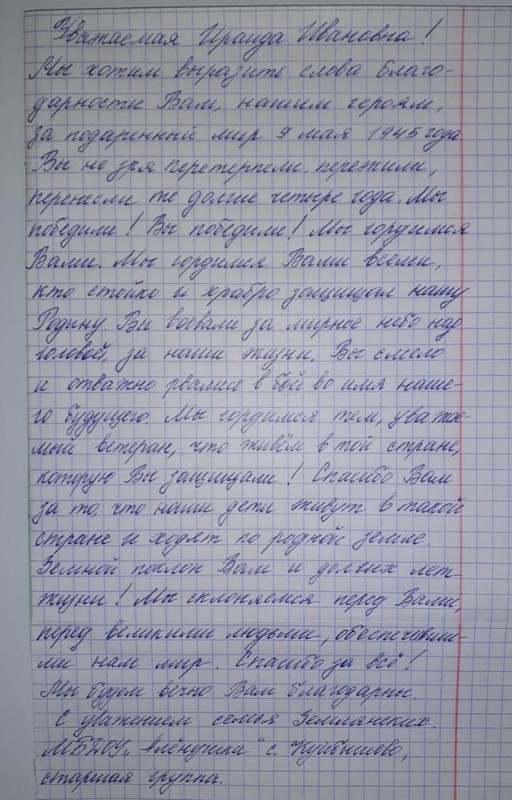 Уважаемая Ираида Ивановна!
Мы хотим выразить слова благо-
дарности Вам, нашим героям,
за подаренный мир 9 мая 1945 года
Вы не зря перетерпели, пережили,
перенесли те долгие четыре года. Мы
победили! Вы победили! Мы гордимся
Вами. Мы гордимся Вами всеми,
кто стойко и храбро защищал нашу
Родину. Вы воевали за мирное небо над
головой, за наши жизни. Вы смело
и отважно рвались в бой во имя наше-
го будущего. Мы гордимся тем, уважае-
мый ветеран, что живём в той стране,
которую Вы защищали! Спасибо Вам
за то, что наши дети живут в такой
стране и ходят по родной земле.
Земной поклон Вам и долгих лет
жизни! Мы склоняемся перед Вами,
перед великими людьми, обеспечивши-
ми нам мир. Спасибо за всё!
Мы будем вечно Вам благодарны.
С уважением семья Землянских.
МБДОУ „Алёнушка" с. Куйбышево,
старшая группа.